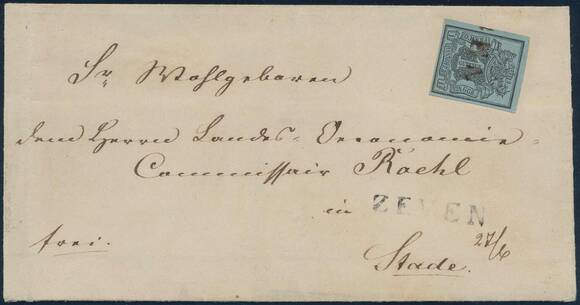 Sr Wohlgeboren
dem Herrn Landes-Oeconomie-
Commissair Roehl
in
ZEVEN
27/6
frei.
Stade.